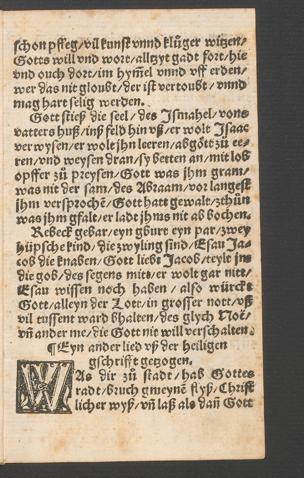 schon pffeg / vil kunst vnnd klůger witzen /
Gotts will vnd wort / allzyt gadt fort / hie
vnd ouch dort / im hym̄el vnnd vff erden /
wer das nit gloubt / der ist vertoubt / vnnd
mag hart selig werden.
Gott stieß die seel / des Ismahel / vons
vatters huß / inß feld hin vß / er wolt Isaac
verwysen / er wolt jhn leeren / abgött zů ee-
ren / vnd weysen dran / sy betten an / mit lob
opffer zů preysen / Gott was jhm gram /
was nit der sam / des Abraam / vor langest
jhm versprochē / Gott hatt gewalt / zthůn
was jhm gfalt / er ladt jhms nit ab bochen.
Rebeck gebar / eyn gburt eyn par / zwey
hüpsche kind / die zwyling sind / Esau Ja-
cob die knaben / Gott liebt Jacob / teylt jm
die gob / des segens mitt / er wolt gar nitt /
Esau wissen noch haben / also würckt
Gott / alleyn der Lott / in grosser nott / vß
vil tussent ward bhalten / des glych Noë /
vñ ander me / die Gott nit will verschalten.
¶ Eyn ander lied vß der heiligen
gschrifft gezogen.
WAs dir zů stadt / hab Gottes
radt / bruch gmeynē flyß / Christ
licher wyß / vñ laß als dañ Gott